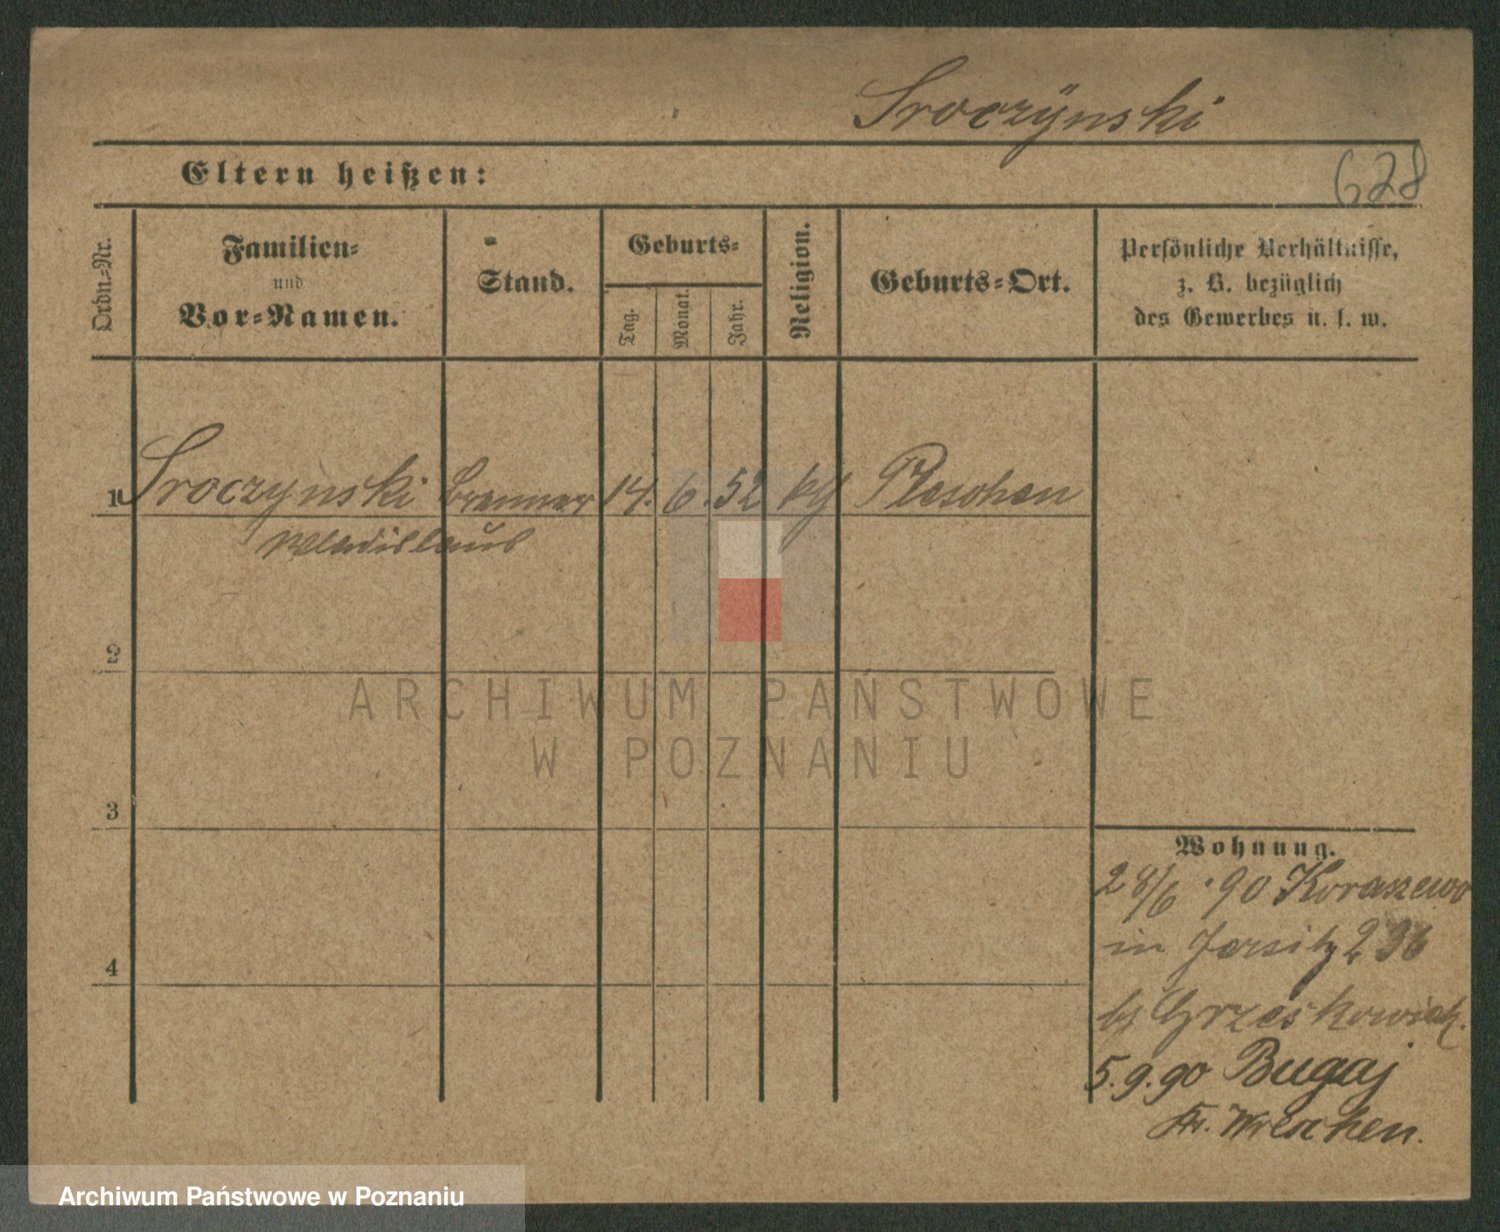 Sroczÿnski
Eltern heißen:
628
Ordn.-Nr.
Familien-
und
Vor-Namen.
Stand.
Geburts-
Tag.
Monat.
Jahr.
Religion.
Geburts-Ort.
Persönliche Verhältnisse,
z. B. bezüglich
des Gewerbes u. s. w.
1 Sroczynski Brenner 14. 6. 52 kg Pleschen
Wladislaus
2
3
4
Wohnung.
28/6 90 Koraszewo
in Jersitz 236
bj Grzeskowiak.
5.9.90 Bugaj
Kr. Wreschen.
ARCHIWUM PAŃSTWOWE
W POZNANIU
Archiwum Państwowe w Poznaniu